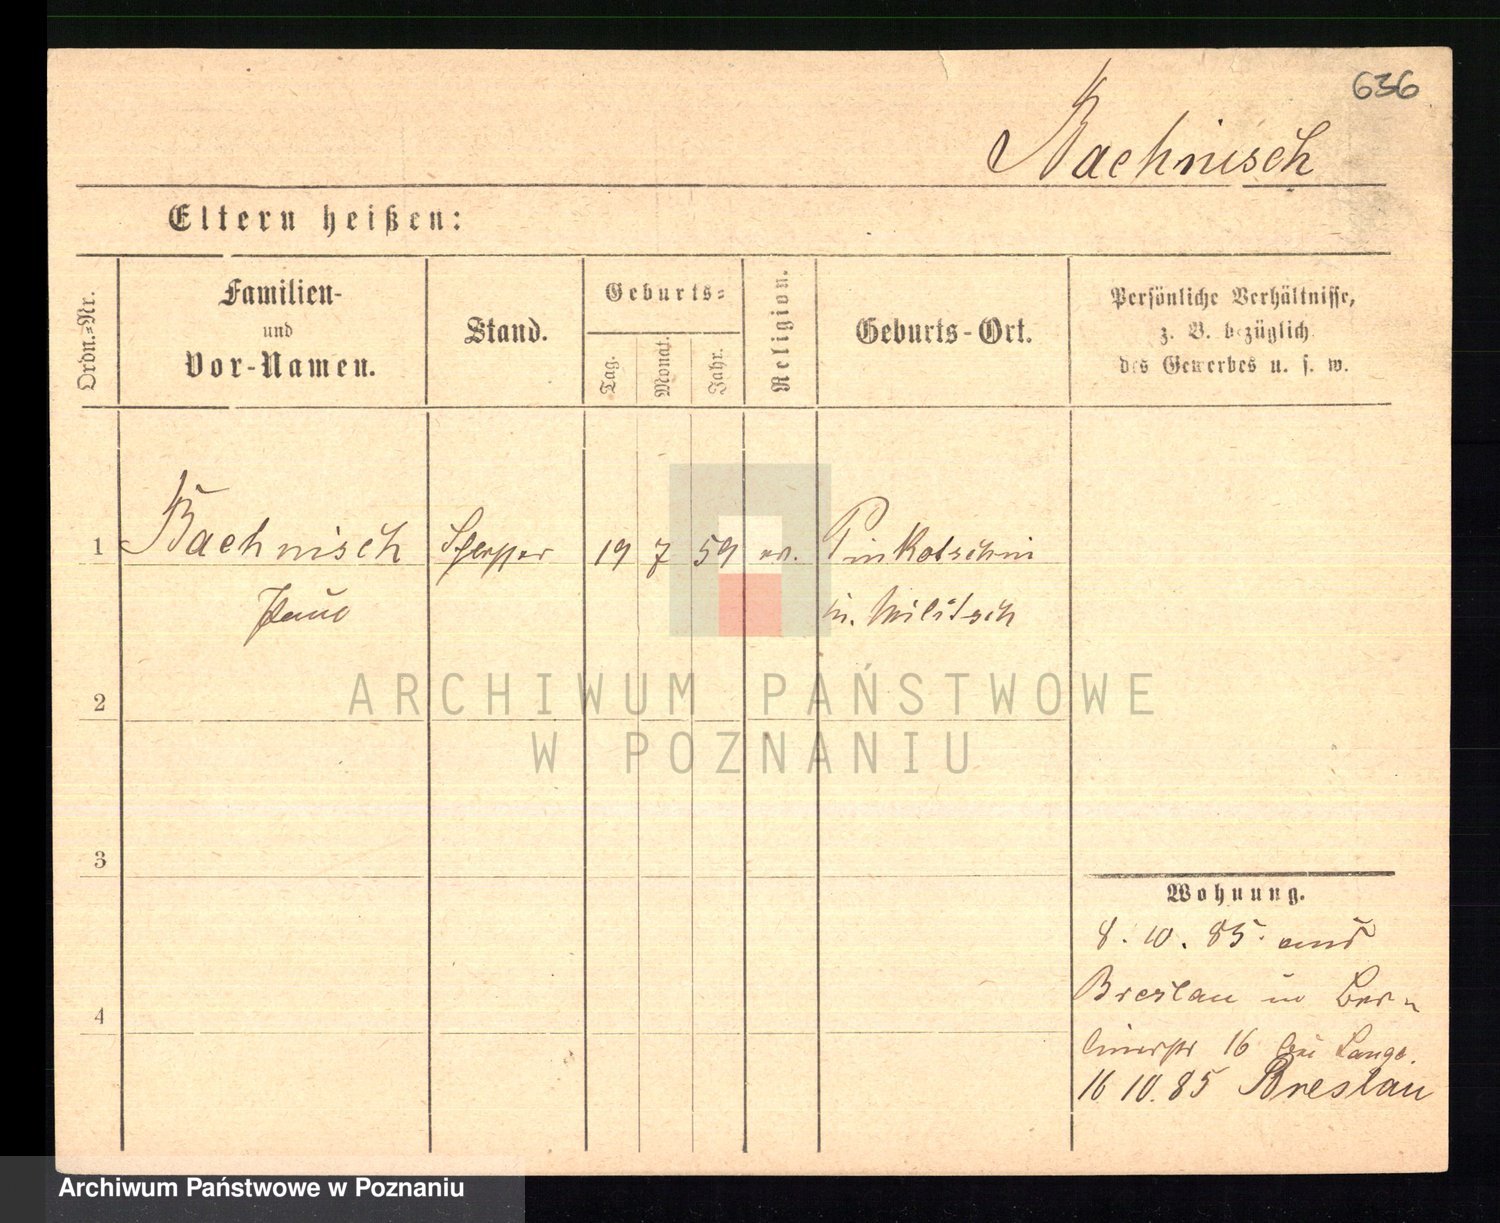 636
Baehnisch
Eltern heißen:
Ordn.=Nr.
Familien-
und
Vor-Namen.
Stand.
Geburts=
Tag.
Monat.
Jahr.
Religion.
Geburts-Ort.
Persönliche Verhältnisse,
z. B. bezüglich
des Gewerbes u. s. w.
1 Baehnisch 19 7 59 ev. Pinkotschin
Paul Militsch
2
3
4
Wohnung.
8. 10. 85. aus
Breslau in Ber-
linerstr 16 bei Lange.
16 10. 85 Breslau
ARCHIWUM PAŃSTWOWE
W POZNANIU
Archiwum Państwowe w Poznaniu